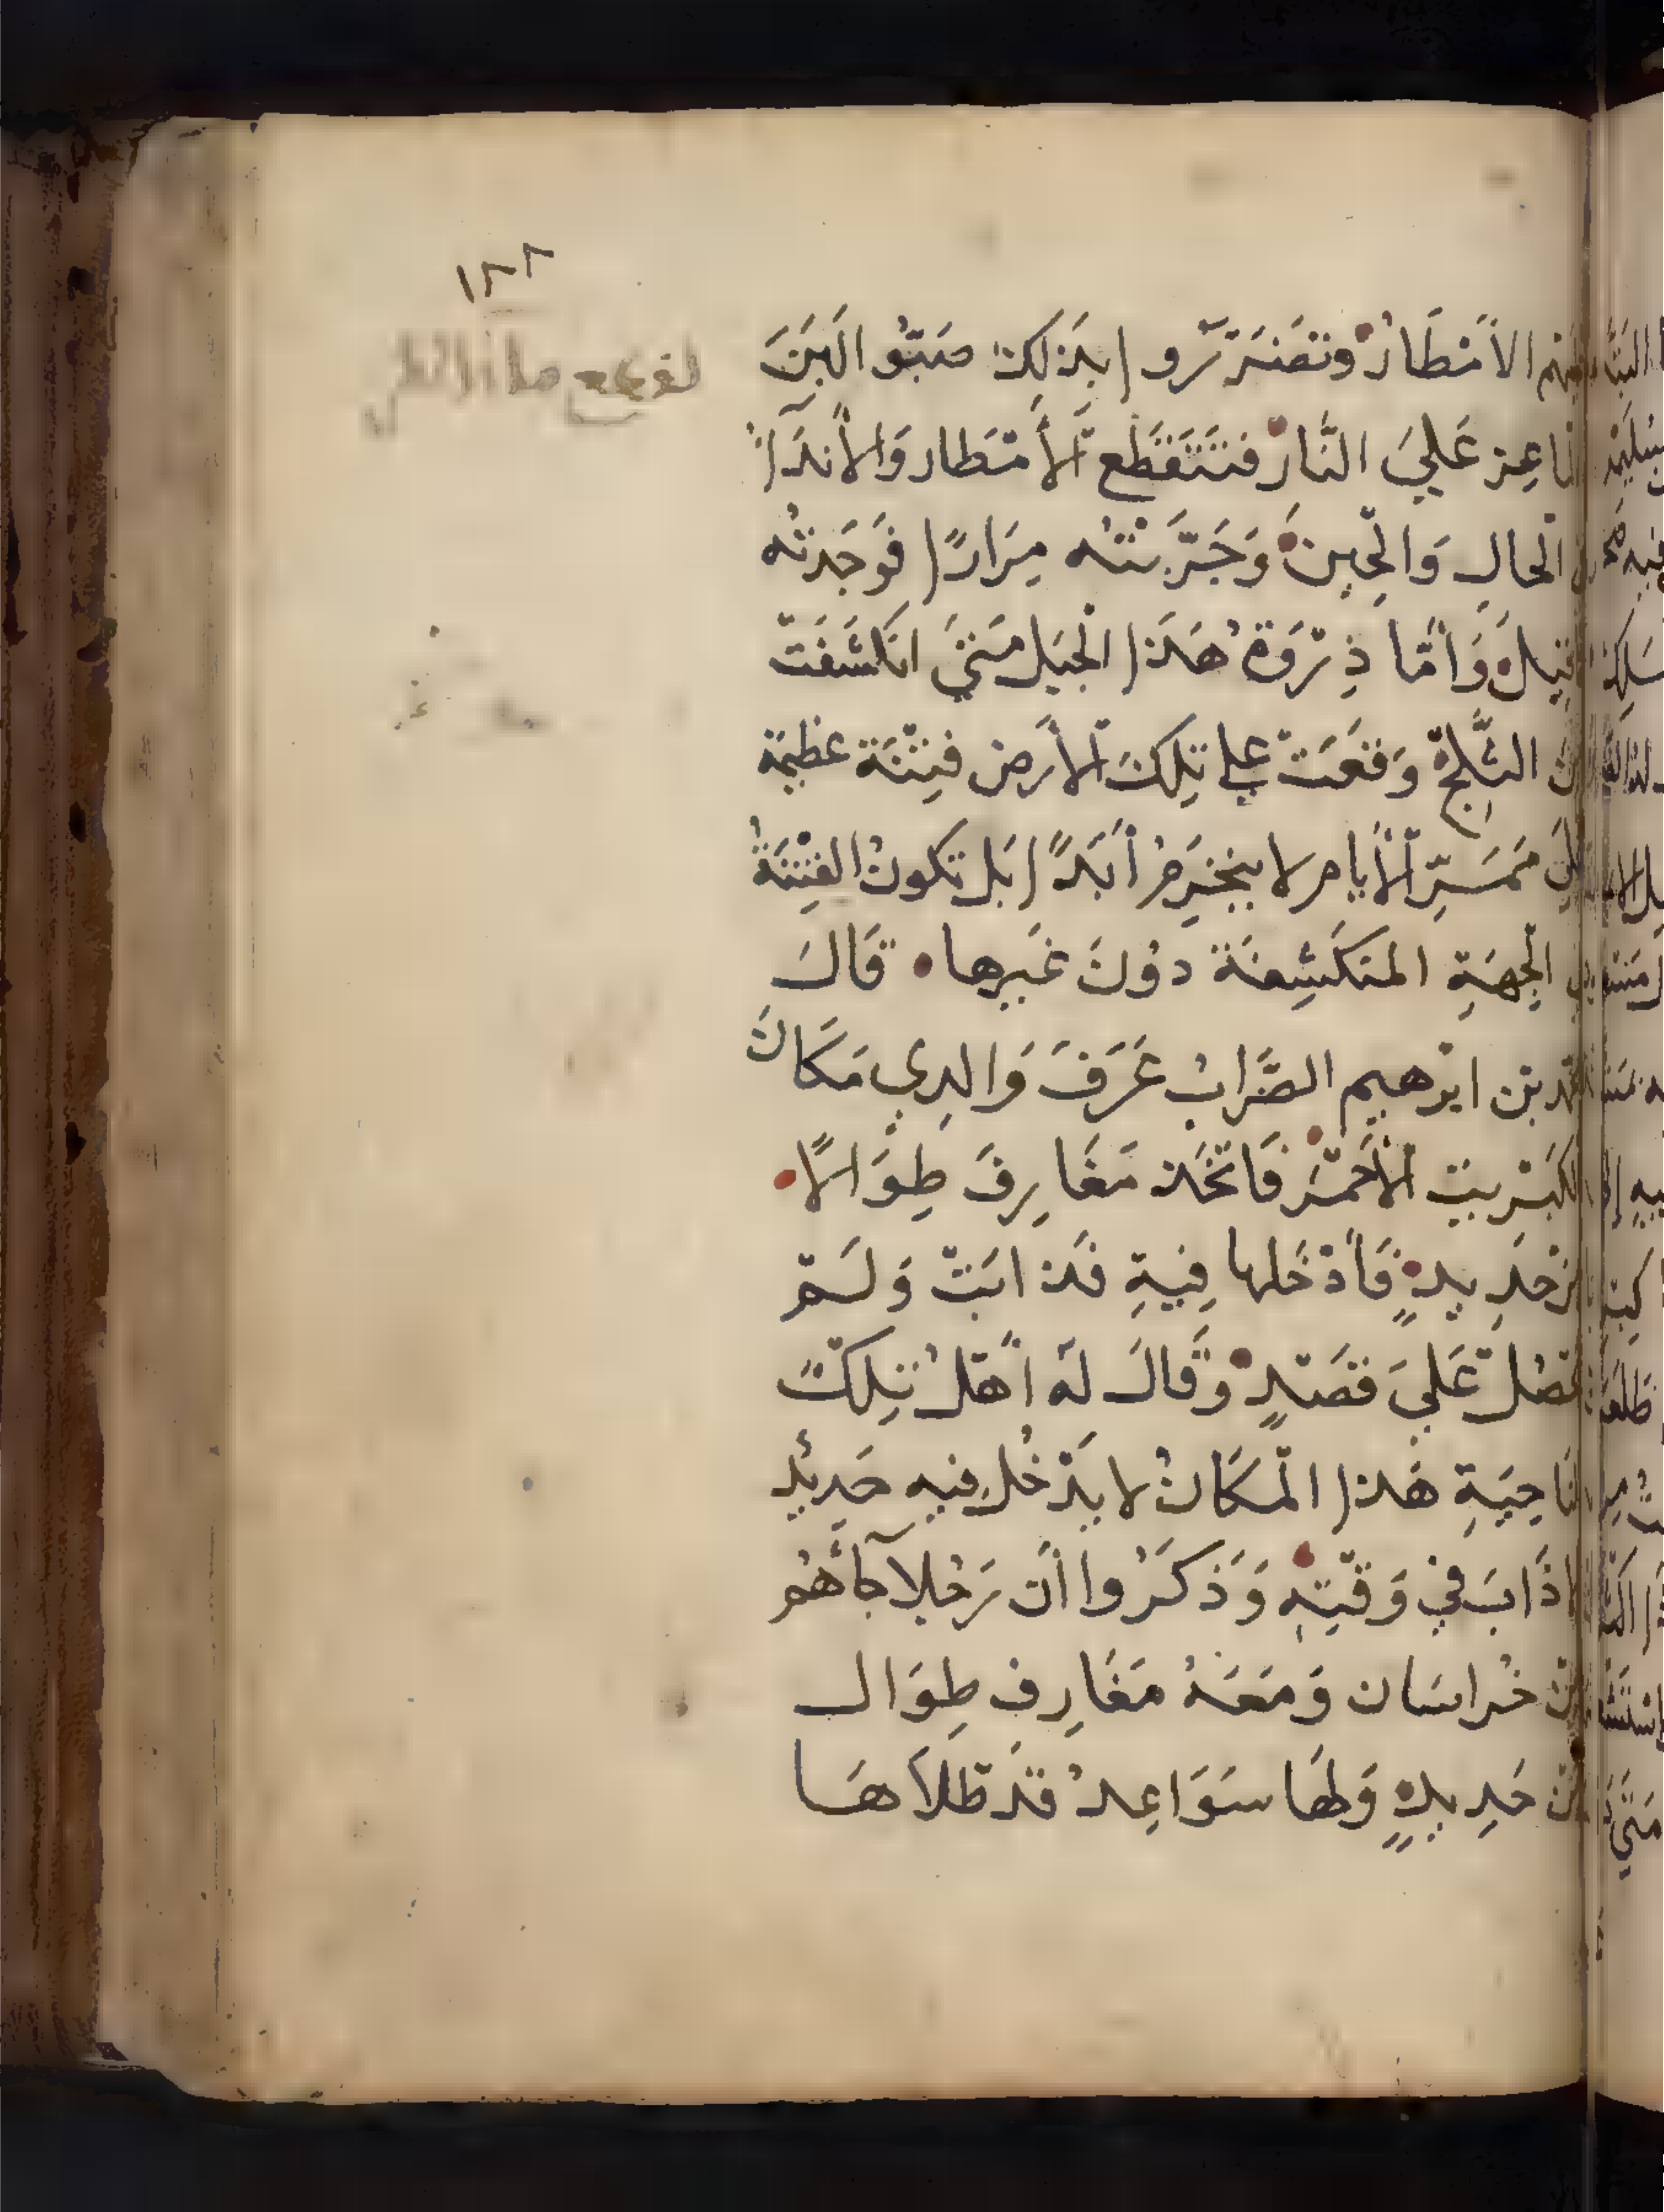 ١٢٢
لقطع هذا المطر
الأَمْطَار وتَضَرَّرُوا بِذَلِكَ صَبُّو الَبَنَ
الماعِز عَلِيَ النَّار فتَتَقَطَع اَلأَمْطار وَالأَندَاءُ
الْحالِ وَالحِين وَجَرَّبْتُه مِرَارًا فَوَجَدتُه
وَأَمّا ذِرْوَةُ هَذَا الْجَبَل مَتَيَ انكَشَفَتْ
الثَّلِجْ وَقَعَتْ عَلي تِلكَ اَلأَرض فِتْنَة عظيمَة
مَمَرِّ اَلأَيام لا يَنخَرِمُ أَبَدًا بَل تكونُ الفِتْنَةُ
الْجِهَةِ المنكَشِفَة دوُنَ غَيرها قَالَ
بن ابرْهيم الضَّرابُ عَرَفَ وَالدِي مَكَانَ
الكبْريت اَلأَحْمَرْ فَاتخَذ مَغَارِفَ طِوَالًا
حَدِيدٍ فَأَدْخَلها فِيهِ فَذَابَتْ وَلَمْ
عَلَيَ قَصَدِهِ وَقَالَ لَه أَهْلُ تِلكَ
النَاحِيَةِ هَذا الْمكَانُ لا يَدْخُل فيه حَديدٌ
ذَابَ في وَقْتِهِ وَذكَرُوا أَن رَجُلاً جاءَهُم
خُراسَان وَمَعَهُ مَغَارِف طِوَال
حَدِيدٍ وَلهَا سَوَاعِدُ قَدْ طَلاَهَا